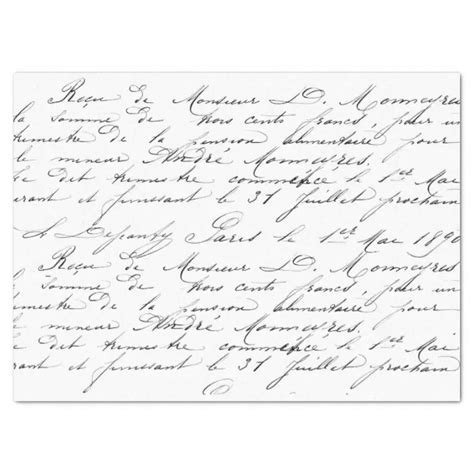 Reçu de Monsieur D. Monmeyres
la somme de trois cents francs, pour un
trimestre de la pension alimentaire pour
le mineur André Monmeyres.
Le dit trimestre commence le 1er Mai
urant et finissant le 31 juillet prochain
Paris le 1er Mai 1890
Reçu de Monsieur D. Monmeyres
la somme de trois cents francs, pour un
imestre de la pension alimentaire pour
le mineur André Monmeyres.
Le dit trimestre commence le 1er Mai
rant et finissant le 31 juillet prochain